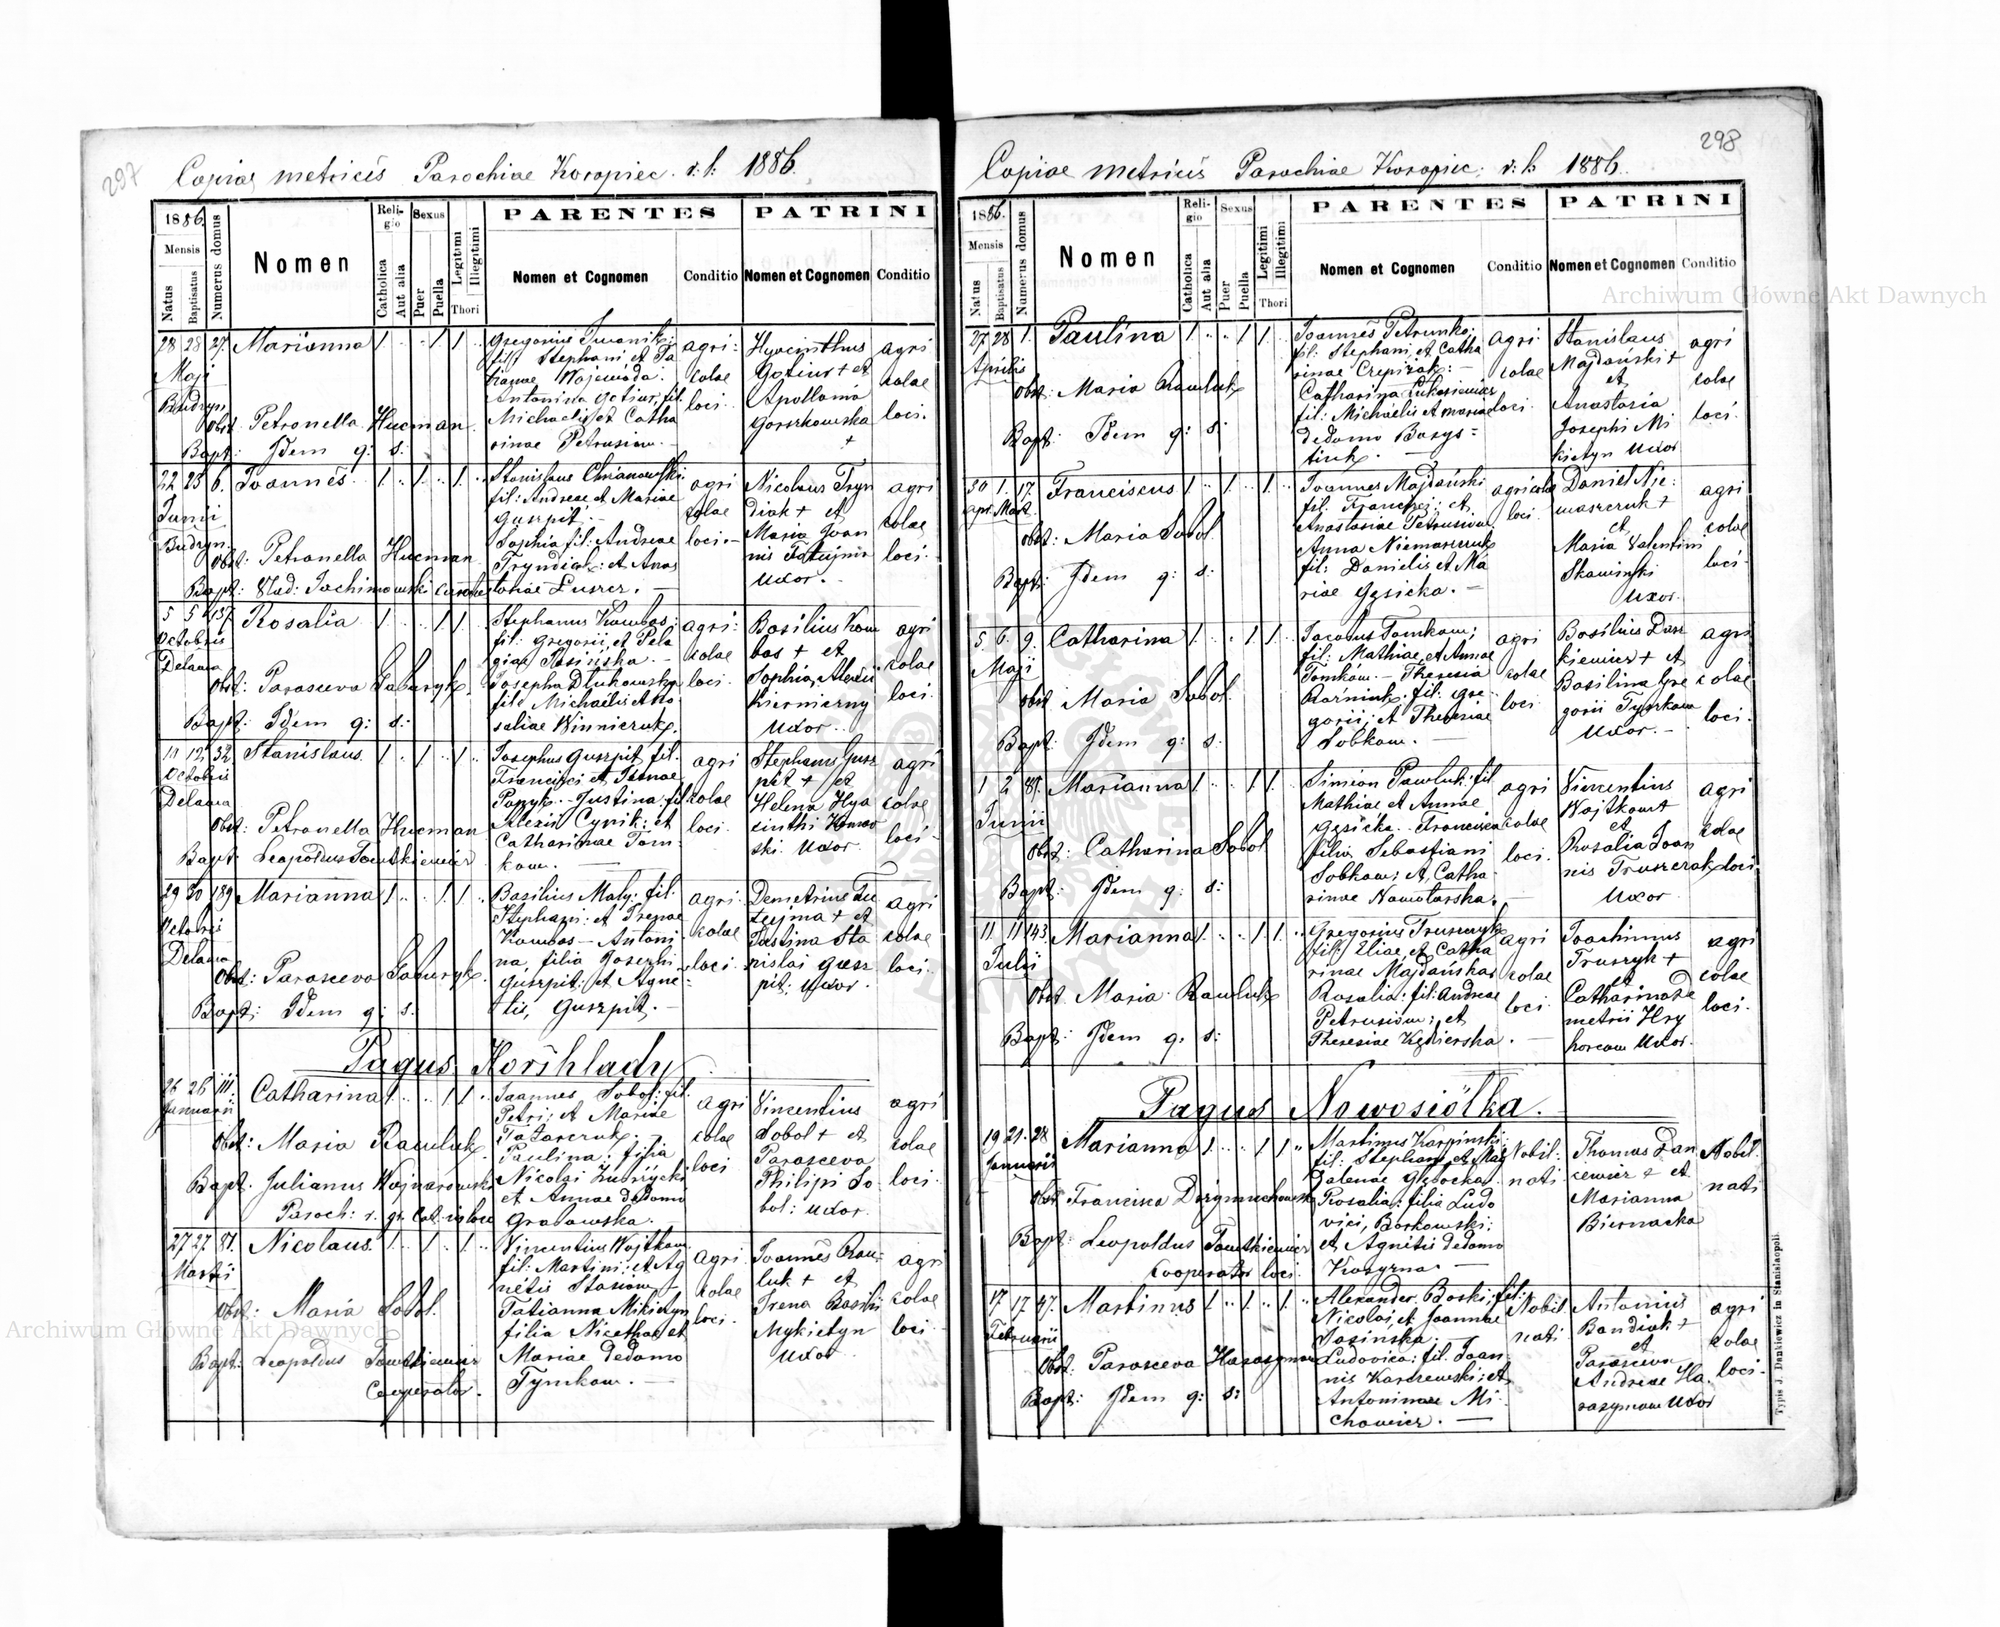 297
Copiae metrices Parochiae Koropiec r: l: 1886.
1886.
Mensis
Natus
Baptisatus
Numerus domus
Nomen
Religio
Catholica
Aut alia
Sexus
Puer
Puella
Legitimi
Illegitimi
Thori
PARENTES
Nomen et Cognomen
Conditio
PATRINI
Nomen et Cognomen
Conditio
28 28 27. Marianna 1 1 1
Maji
Obst: Petronella Hucman
Bapt: Idem q: s:
Gregorius
fil: Stephani et Ta
tianae Wojewoda.
Michaelis et Catha
rinae Petrusiow. —
agri:
colae
loci.
Hyacinthus
et
Apollonia
Gorszkowska
+
agri
colae
loci.
22 23 6. Joannes. 1 1 1
Junii
Obst: Petronella Hucman
Bapt: Vlad: Jachimowski
Stanislaus
fil: Andreae et Mariae
Guszpit. —
Sophia fil: Andreae
Tryndiak: et Anas
tasiae
agri
colae
loci. -
Nicolaus Tryn
diak + et
Maria Joan
nis
uxor. -
agri
colae
loci. -
5 5 157. Rosalia 1 1 1
Octobris
Delawa
Obst: Parasceva
Bapt: Idem q: s:
Stephanus Kowbas;
fil: Gregorii et Pela
giae
fil: Michaelis et Ro
saliae Winniczuk.
agri:
colae
loci.
Basilius Kow
bas + et
Sophia Alexii
uxor.
agri
colae
loci.
11 12 32. Stanislaus. 1 1 1
Octobris
Delawa
Obst: Petronella Hucman
Bapt: Leopoldus
Josephus Guszpit fil:
Francisci et
Justina fil:
Alexii Cynik: et
Catharinae Tom
kow. —
agri
colae
loci.
Stephanus Gusz
pit + et
Helena Hya
cinthi
ski uxor.
agri
colae
loci -
29 30 189. Marianna 1 1 1
Octobris
Delawa
Obst: Parasceva
Bapt: Idem q: s:
Basilius Maly: fil:
Stephani: et Irenae
Kowbas — Antoni
na, filia Josephi
Guszpit: et Agne-
tis, Guszpit. —
agri
colae
loci.
Demetrius
+ et
Justina Sta
nislai Gusz
pit: uxor.
agri
colae
loci.
Pagus
26 26 111. Catharina 1 1 1
Januarii
Obst: Maria Rawluk.
Bapt. Julianus
Paroch: r. gr. cat. in loco
Joannes Sobol: fil:
Petri; et Mariae
Tatarczuk;
Paulina: filia
Nicolai
et Annae dedomo
Grabowska.
agri
colae
loci
Vincentius
Sobol + et
Parasceva
Philipi So
bol: uxor.
agri
colae
loci.
27 27 81. Nicolaus. 1 1 1
Martii
Obst: Maria Sobol.
Bapt: Leopoldus
Cooperator.
Vincentius Wojtkow
fil: Martini: et Ag
netis
Tatianna Mikietyn
filia Nicethae et
Mariae dedomo
Tymkow. —
agri
colae
loci.
Joannes Raw-
luk + et
Irena Basilii
Mykietyn
uxor
agri
colae
loci -
298
Copiae metrices Parochiae Koropiec: r: l: 1886.
1886.
Mensis
Natus
Baptisatus
Numerus domus
Nomen
Religio
Catholica
Aut alia
Sexus
Puer
Puella
Legitimi
Illegitimi
Thori
PARENTES
Nomen et Cognomen
Conditio
PATRINI
Nomen et Cognomen
Conditio
27 28 1. Paulina 1 1 1
Aprilis
Obst: Maria Rawluk
Bapt: Idem q: s:
Joannes Petrunko;
fil: Stephani et Catha
rinae
Catharina Lukasiewicz
fil: Michaelis et Mariae
dedomo Borys=
tiuk. —
agri
colae
loci.
Stanislaus
Majdański +
et
Anastasia
Josephi Mi
kietyn uxor
agri
colae
loci.
30 1. 17. Franciscus 1 1 1
Apr. Maji.
Obst: Maria Sobol.
Bapt: Idem q: s:
Joannes Majdański
fil: Francisci; et
Anastasiae Petrusiow.
Anna Niemaszczuk
fil: Danielis et Ma
riae Gęsicka. —
agricolae
loci
Daniel Nie:
maszczuk +
et
Maria Valentini
Skawinski
uxor.
agri
colae
loci.
5 6. 9. Catharina 1 1 1
Maji
Obst: Maria Sobol.
Bapt: Idem q: s:
Jacobus Tomkow;
fil: Mathiae et Annae
Tomkow — Theresia
fil: Gre
gorii; et Theresiae
Sobkow. —
agri
colae
loci
Basilius
kiewicz + et
Basilina Gre
gorii Tymkow
uxor. -
agri
colae
loci.
1 2 87. Marianna 1 1 1
Junii
Obst: Catharina Sobol
Bapt: Idem q: s:
Simeon Pawluk: fil
Mathiae et Annae
Gęsicka. Francisca
filia Sebastiani
Sobkow; et Catha
rinae Nawolarska. —
agri
colae
loci.
Vincentius
et
Rosalia Joan
nis
uxor
agri
colae
loci
11 11 143. Marianna 1 1 1
Julii
Obst. Maria Rawluk
Bapt: Idem q: s:
Gregorius Truszczyk
fil: Eliae et Catha
rinae Majdańska
Rosalia: fil: Andreae
Petrusiow; et
Theresiae Kędzierska. —
agri
colae
loci
Joachimus
Truszyk +
et
Catharina De
metrii Hry
horcow uxor.
agri
colae
loci.
Pagus Nowosiólka.
19 21. 28 Marianna 1 1 1
Januarii
Obst: Francisca
Bapt: Leopoldus
Cooperator loci.
Martinus Karpinski;
fil: Stephani et Mag
dalenae Głębocka
Rosalia: filia Ludo
vici, Borkowski;
et Agnetis dedomo
—
Nobil:
nati
Thomas
+ et
Marianna
Biernacka
Nobil.
nati
17 17. 47. Martinus 1 1 1
Februarii
Obst: Parasceva Harasymow
Bapt: Idem q: s:
Alexander Boski; fil:
Nicolai, et Joannae
Jasinska
Ludovica: fil: Joan-
nis Karczewski; et
Antoninae Mi
chowicz. —
Nobil.
nati
Antonius
Bandiak +
et
Parasceva
Andreae Ha
rasymow uxor
agri
colae
loci -
Typis J. Dankiewicz in Stanislaopoli.
Archiwum Główne Akt Dawnych
Archiwum Główne Akt Dawnych